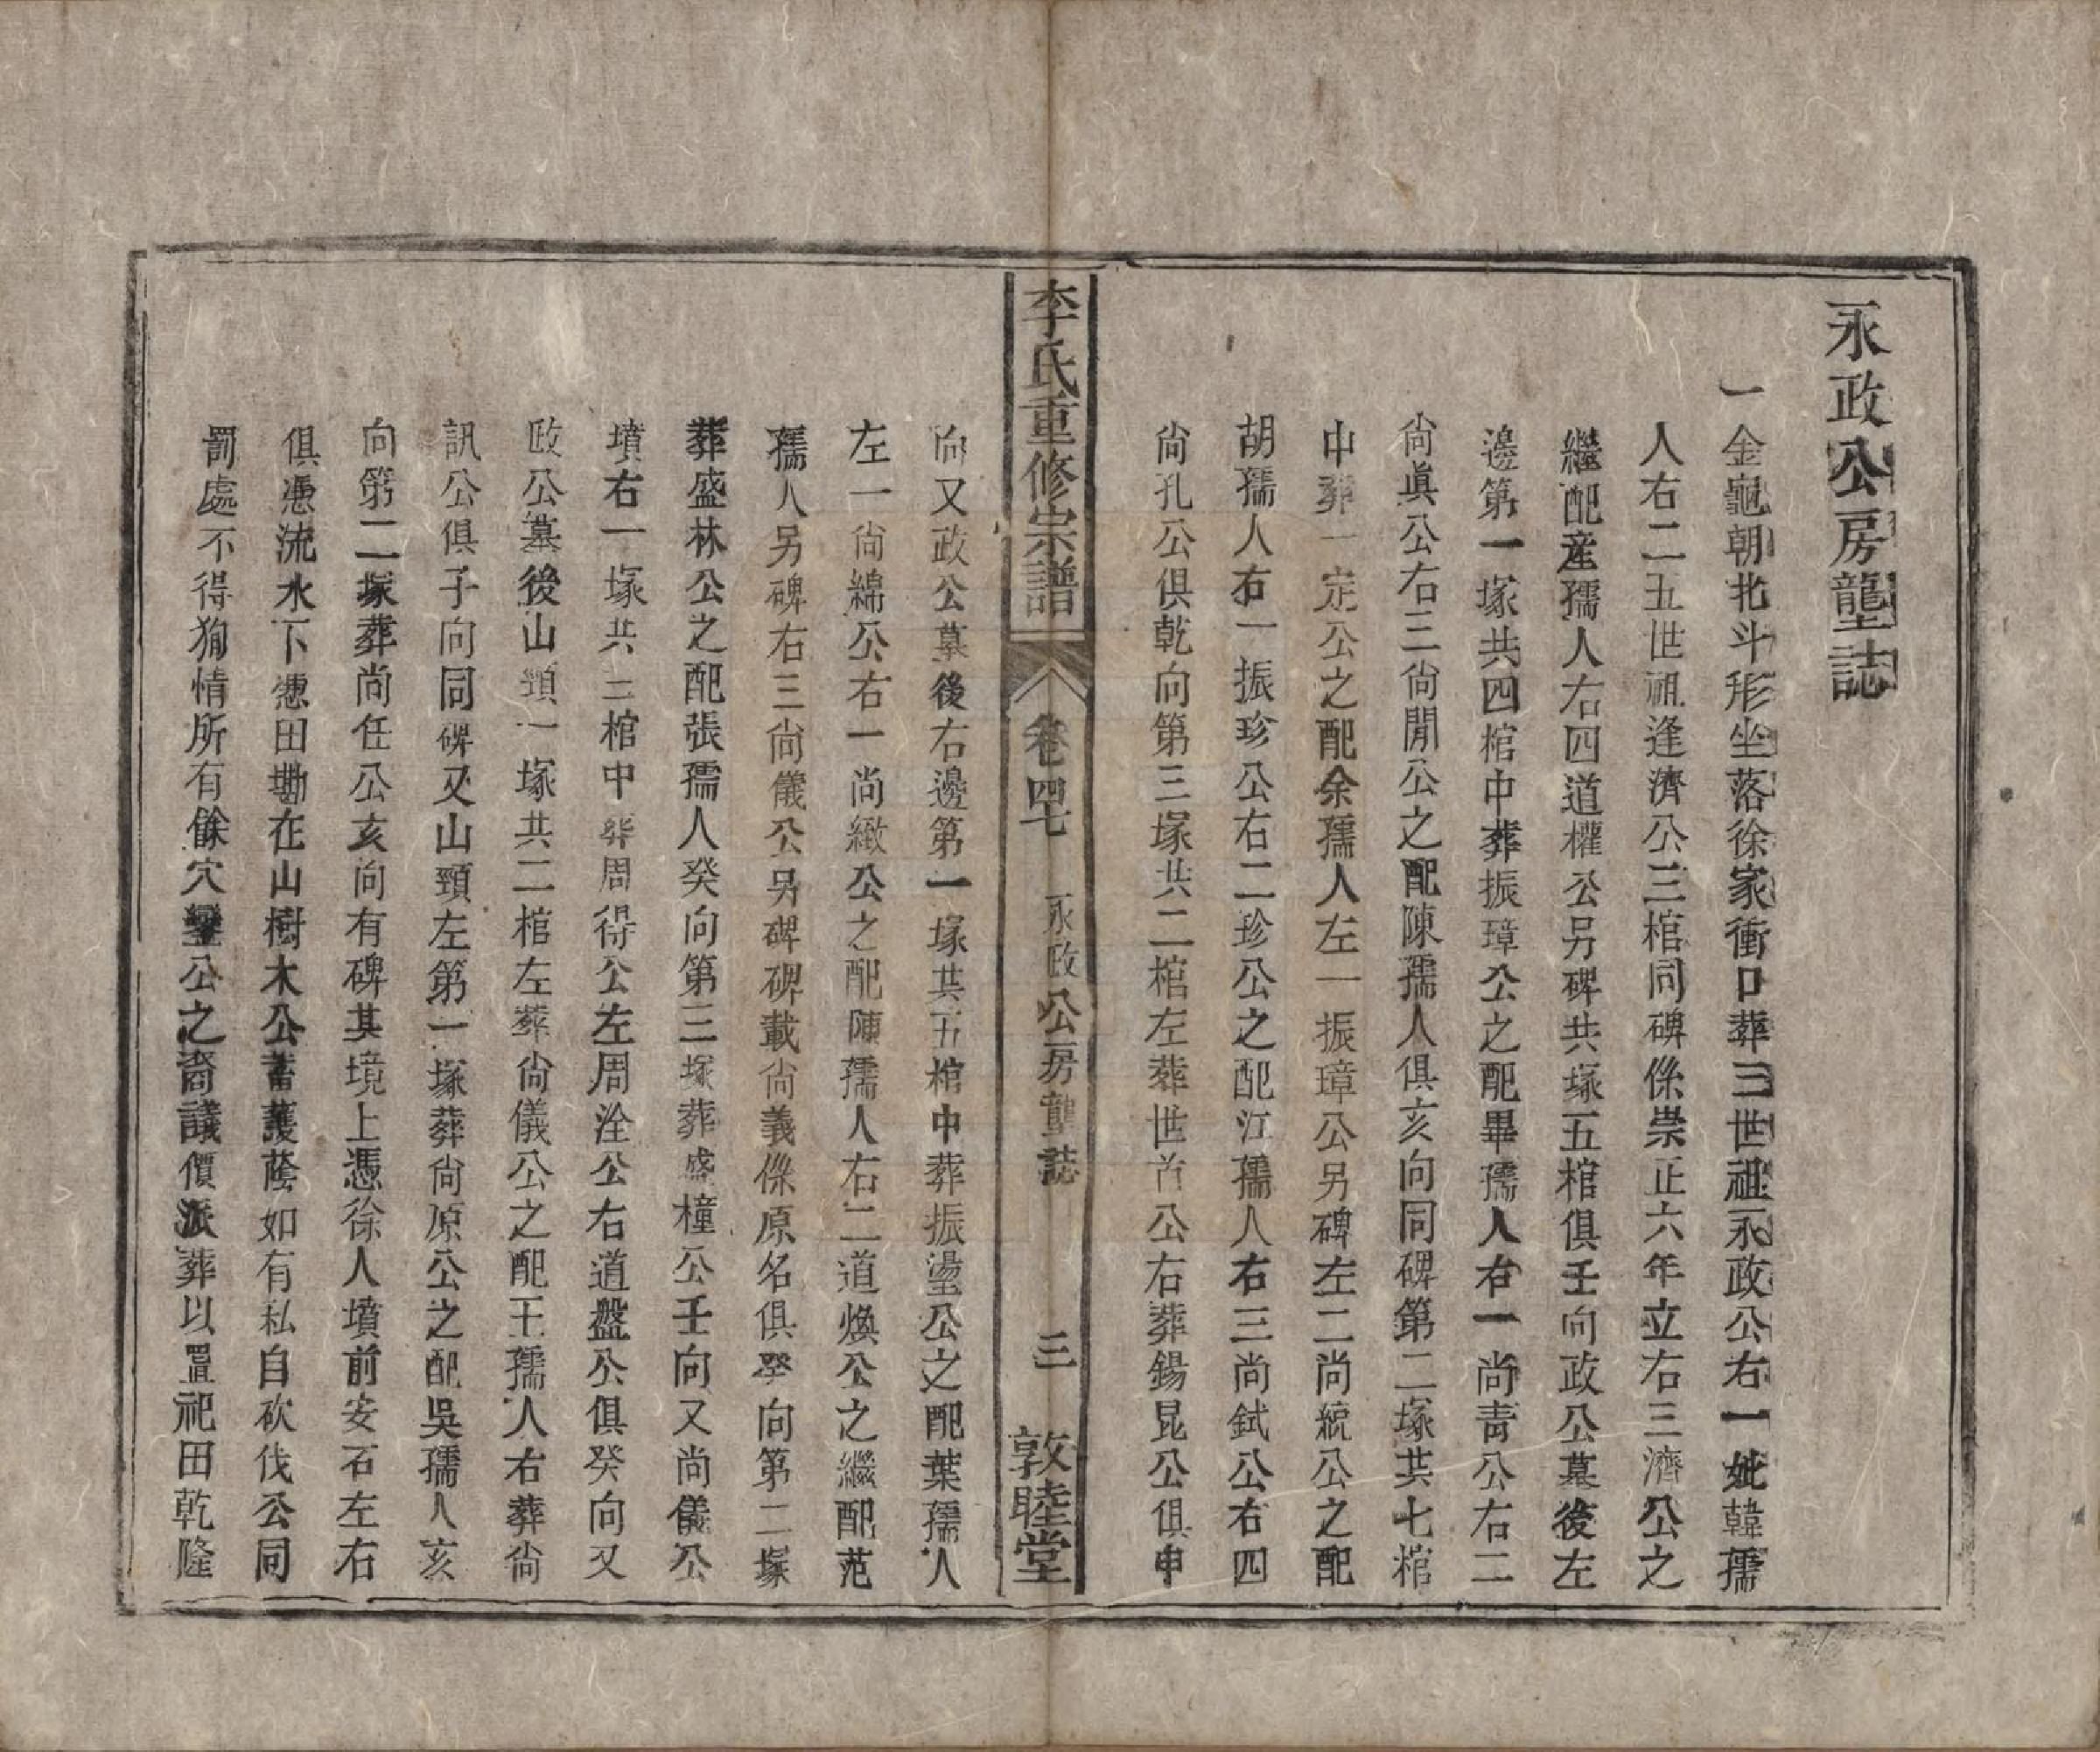 永政公房壟誌
一金龜朝北斗形坐落徐家衝口葬三世祖永政公右一妣韓孺
人右二五世祖逢濟公三棺同碑係崇正六年立右三濟公之
繼配産孺人右四道權公另碑共塚五棺俱壬向政公墓後左
邊第一塚共四棺中葬振璋公之配畢孺人右一尚靑公右二
尚眞公右三尚閒公之配陳孺人俱亥向同碑第二塚其七棺
中葬一定公之配余孺人左一振璋公另碑左二尚統公之配
胡孺人右一振珍公右二珍公之配江孺人右三尚鉽公右四
尚孔公俱乾向第三塚共二棺左葬世首公右葬錫昆公俱申
李氏重修宗譜 卷四七 永政公房壟誌 三 敦睦堂
向又政公墓後右邊第一塚共五棺中葬振瀅公之配葉孺人
左一尚綿公右一尚緻公之配陳孺人右二道煥公之繼配范
孺人另碑右三尚儀公另碑碑載尚義係原名俱癸向第二塚
葬盛林公之配張孺人癸向第三塚葬盛橦公壬向又尚儀公
墳右一塚共三棺中葬周得公左周淦公右道盤公俱癸向又
政公墓後山頸一塚共二棺左葬尚儀公之配王孺人右葬尚
訊公俱子向同碑又山頸左第一塚葬尚原公之配吳孺人亥
向第二塚葬尚任公亥向有碑其境上憑徐人墳前安石左右
俱憑流水下憑田墈在山樹木公蓄護蔭如有私自砍伐公同
罰處不得狥情所有餘穴鑾公之裔議價派葬以置祀田乾隆